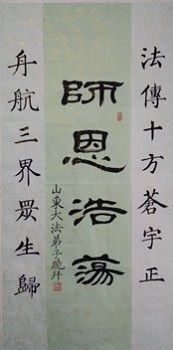 法傳十方蒼宇正
師恩浩蕩
山東大法弟子跪拜
舟航三界眾生歸